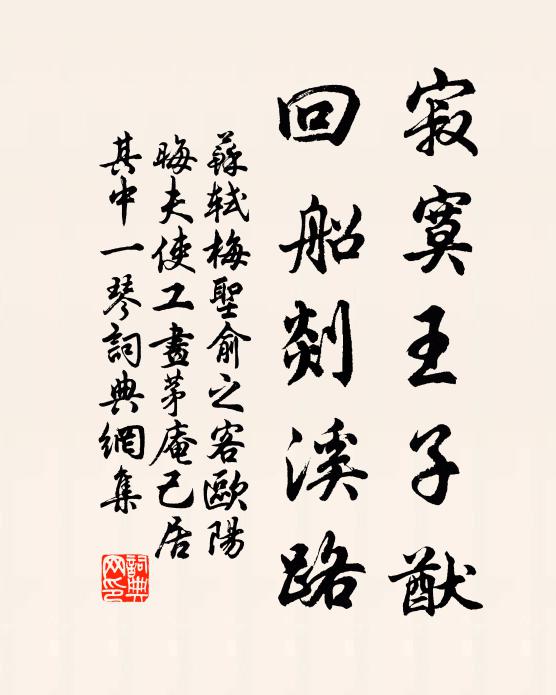 寂寞王子猷
回船剡溪路
蘇軾梅聖俞之客歐陽
晦夫使工畫茅庵己居
其中一琴詞典網集
詞典网印